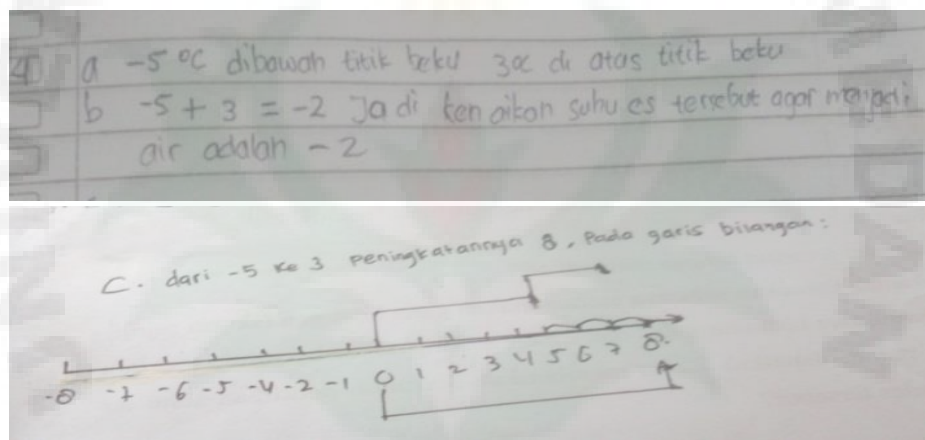 4 a -5 °C dibawah titik beku 3°C di atas titik beku
b -5 + 3 = -2 Jadi kenaikan suhu es tersebut agar menjadi
air adalah - 2
C. dari -5 ke 3 peningkatannya 8, Pada garis bilangan:
-8 -7 -6 -5 -4 -2 -1 0 1 2 3 4 5 6 7 8